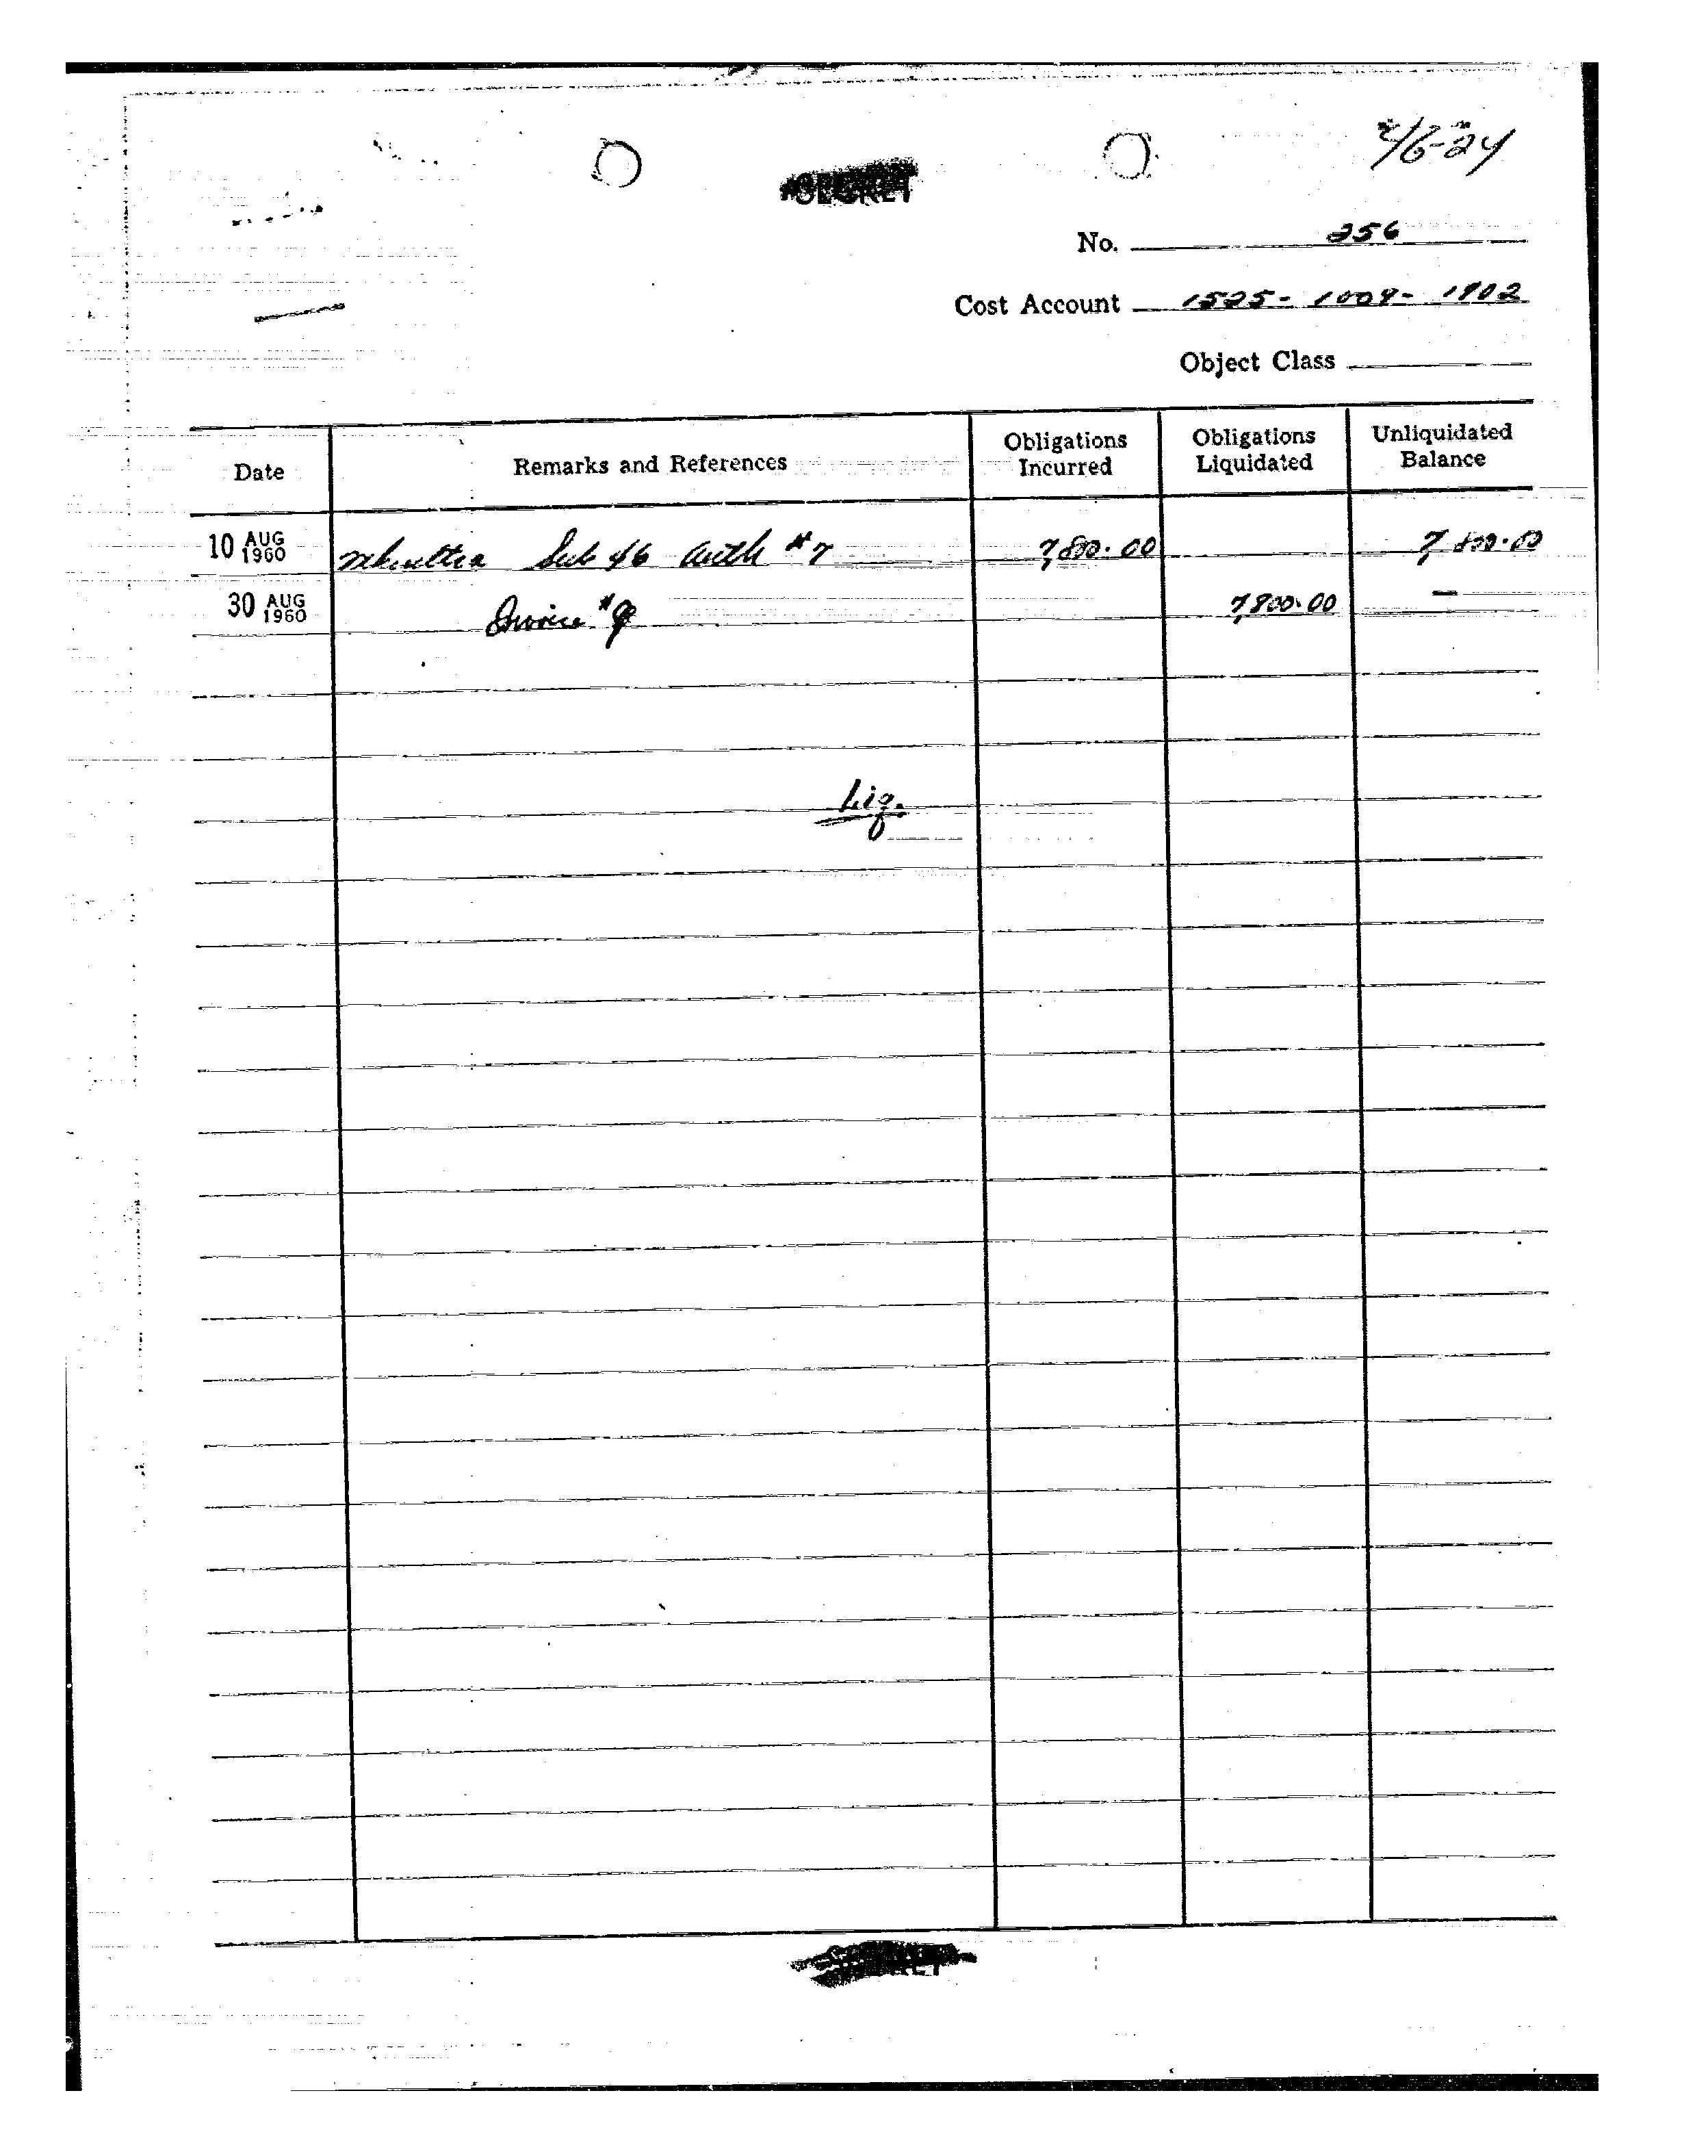 46-24
SECRET
No. 256
Cost Account 1525-1009-1902
Object Class
Date Remarks and References Obligations Incurred Obligations Liquidated Unliquidated Balance
10 AUG 1960 mkultra Sub 46 Auth #7 7,800.00 7,800.00
30 AUG 1960 Invoice #9 7,800.00 —
Liq.
SECRET